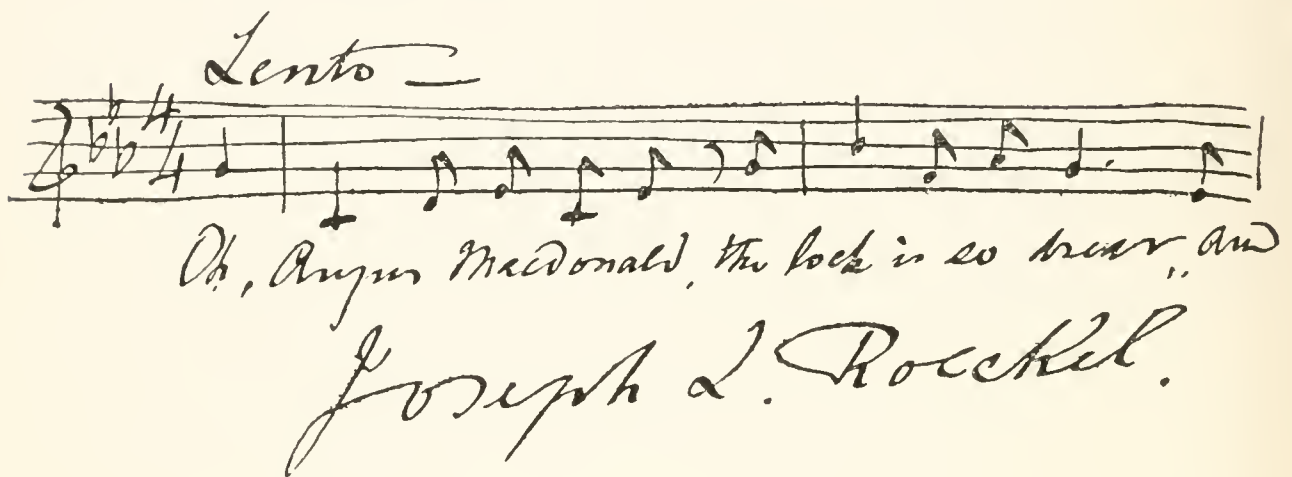 Lento
4
4
Oh, Angus Macdonald, the loch is so drear, and
Joseph L. Roeckel.